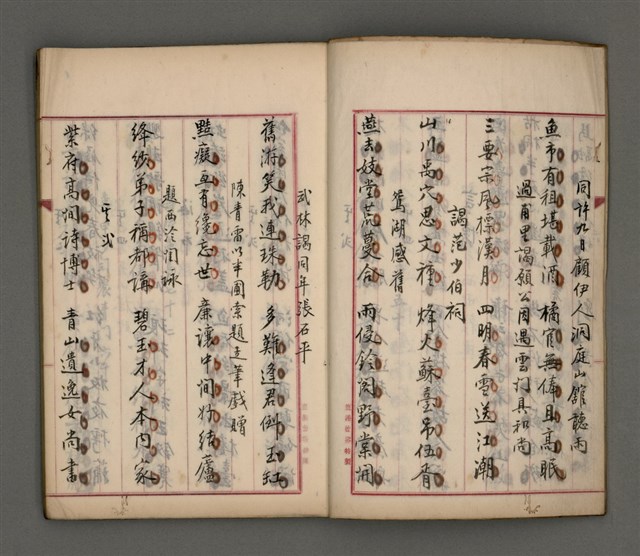 同許九日顧伊人洞庭山館聽雨
魚市有租堪載酒　橘官無俸且高眠
過甫里謁願公因遇雲門具和尚
三要宗風標漢月　四明春雪送江潮
謁范少伯祠
山川禹穴思文種　烽火蘇臺弔伍胥
鴛湖感舊
燕去妓堂荒蔓合　雨侵鈴閣野棠開
武林謁同年張石平
舊游笑我連珠勒　多難逢君倒玉缸
陳青雷以半圃索題走筆戲贈
黠癡互有纔忘世　廉讓中間好結廬
題西泠閨詠
絳紗弟子稱都講　碧玉才人本內家
其弍
紫府高閒詩博士　青山遺逸女尚書